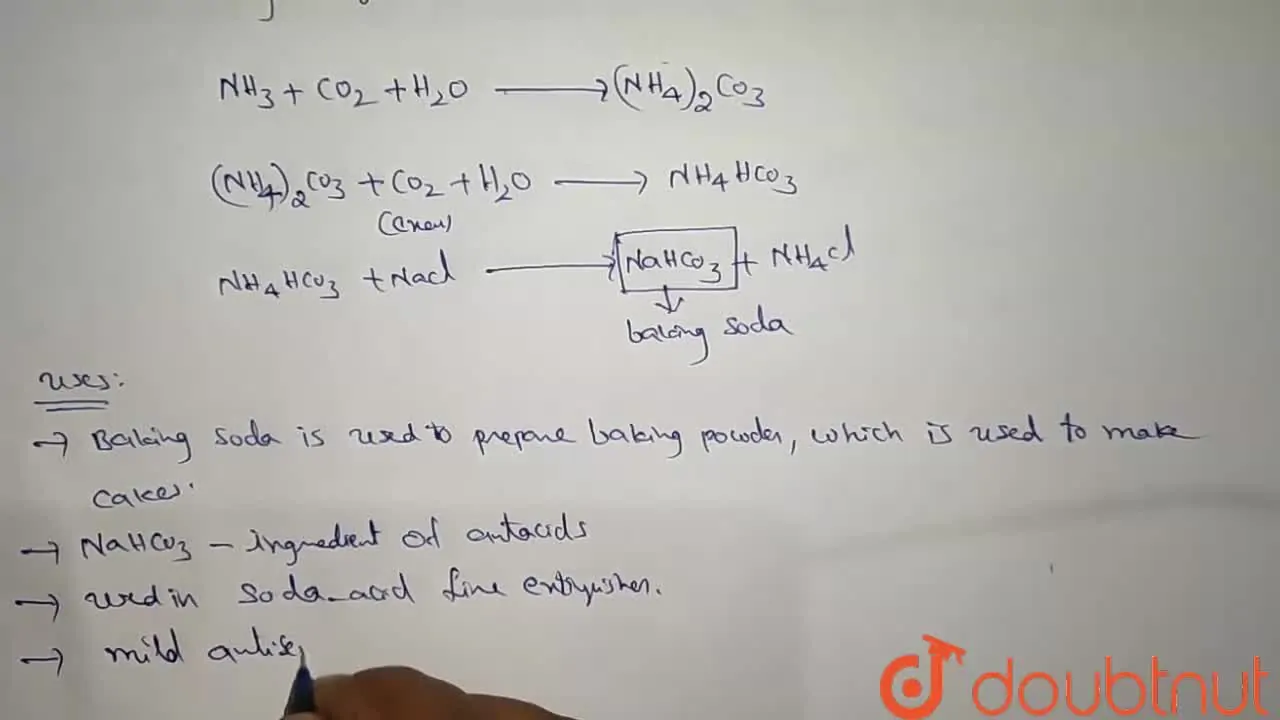 NH3 + CO2 + H2O ⟶ (NH4)2CO3
(NH4)2CO3 + CO2 + H2O ⟶ NH4HCO3
NH4HCO3 + NaCl ⟶ NaHCO3 + NH4Cl
baking soda
uses:
→ Baking soda is used to prepare baking powder, which is used to make
cakes.
→ NaHCO3 - ingredient of antacids
→ used in soda-acid fire extinguisher.
→ mild antise
doubtnut